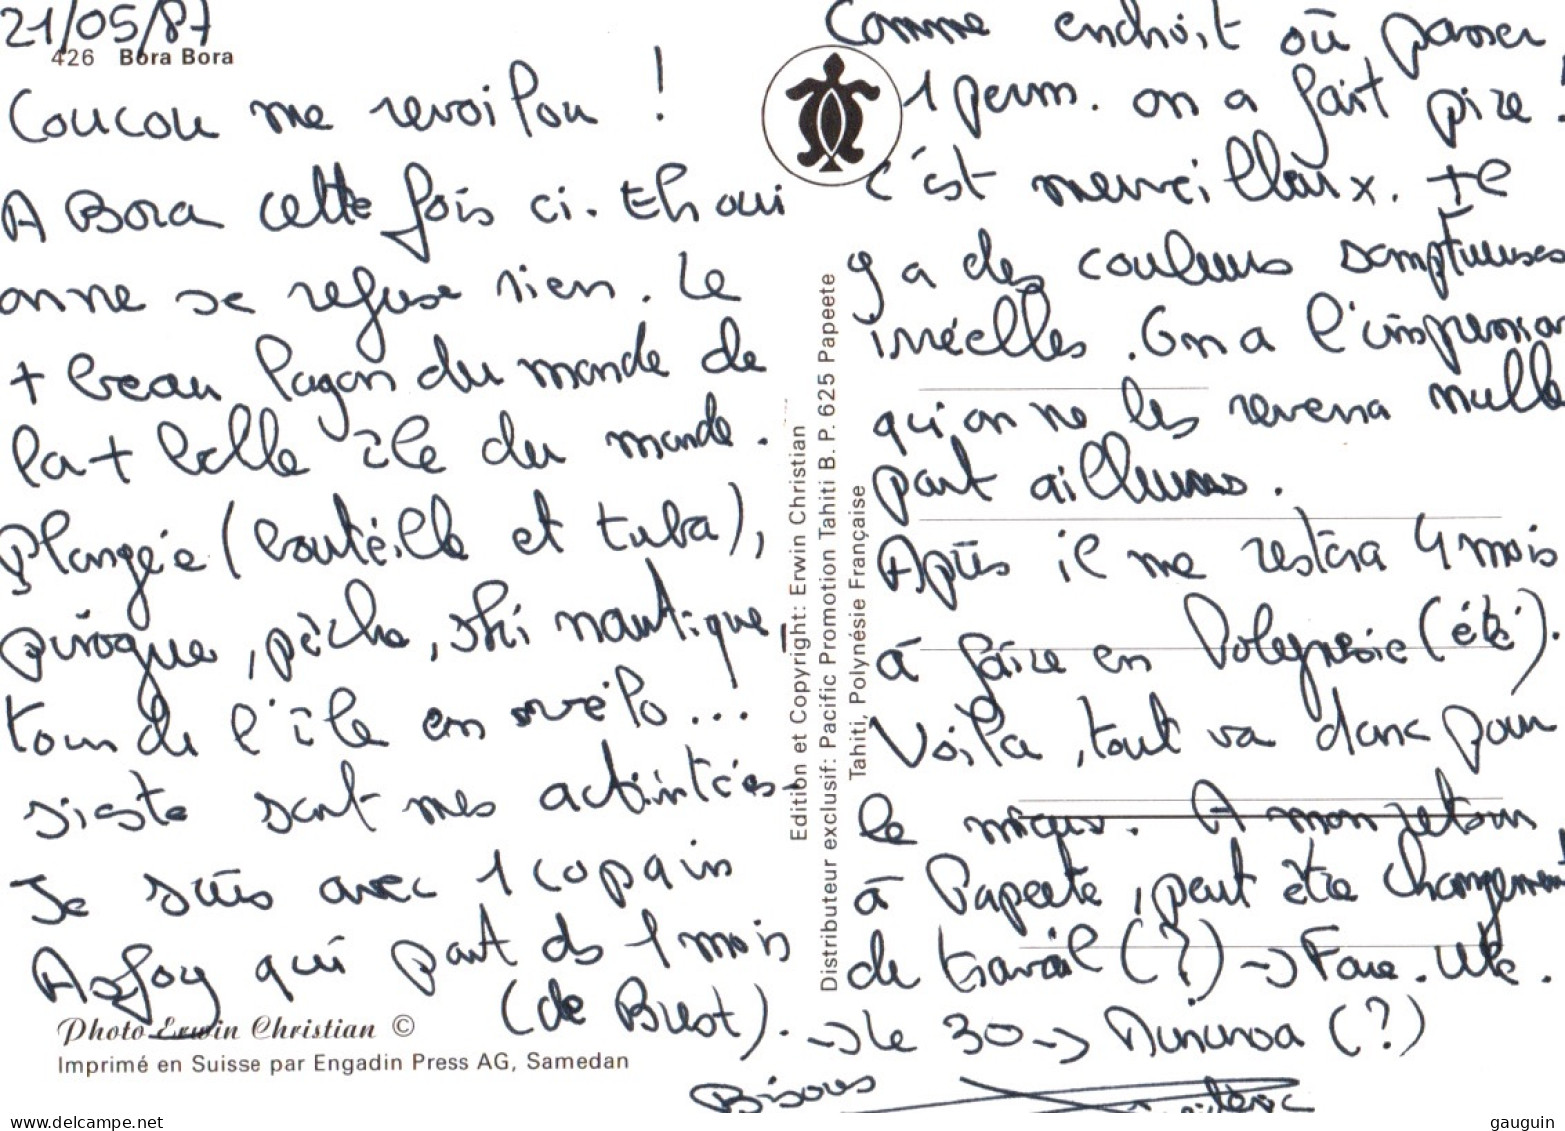 21/05/87
426 Bora Bora
Coucou me revoilou !
A Bora cette fois ci. Eh oui
on ne se refuse rien. Le
+ beau lagon du monde de
la + belle île du monde.
Plongée (bouteille et tuba),
pirogue, pêche, ski nautique,
tour de l'île en vélo...
sieste sont mes activités.
Je suis avec 1 copain
qui part ds 1 mois
(de Brest).
Photo Erwin Christian ©
Imprimé en Suisse par Engadin Press AG, Samedan
Edition et Copyright: Erwin Christian
Distributeur exclusif: Pacific Promotion Tahiti B. P. 625 Papeete
Tahiti, Polynésie Française
Comme endroit où passer
1 perm. on a fait pire !
c'est merveilleux. +
y a des couleurs somptueuses
irréelles. On a l'impression
qu'on ne les reverra nulle
part ailleurs.
Après il me restera 4 mois
à faire en Polynésie (été).
Voilà, tout va donc pour
le mieux. A mon retour
à Papeete, peut être changement
de travail (?) -> Fare. Ute.
-> le 30 -> Mururoa (?)
Bisous
gauguin